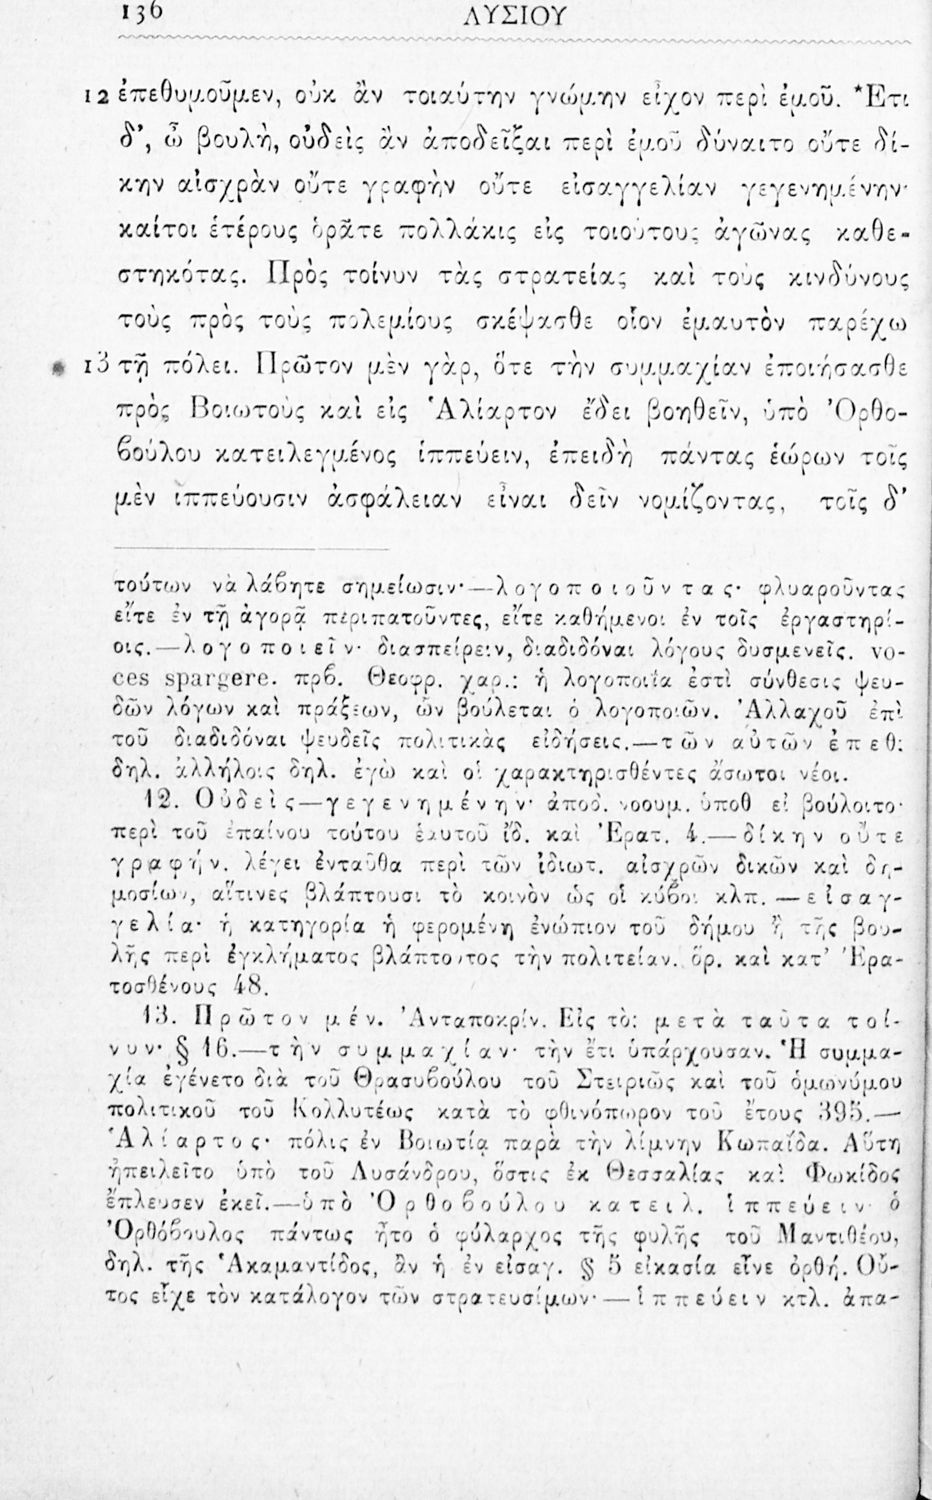 136
ΛΥΣΙΟΥ
12 ἐπεθυμοῦμεν, οὐκ ἂν τοιαύτην γνώμην εἶχον περὶ ἐμοῦ. Ἔτι
δ', ὦ βουλή, οὐδεὶς ἂν ἀποδεῖξαι περὶ ἐμοῦ δύναιτο οὔτε δί-
κην αἰσχρὰν οὔτε γραφὴν οὔτε εἰσαγγελίαν γεγενημένην·
καίτοι ἑτέρους ὁρᾶτε πολλάκις εἰς τοιούτους ἀγῶνας καθε-
στηκότας. Πρὸς τοίνυν τὰς στρατείας καὶ τοὺς κινδύνους
τοὺς πρὸς τοὺς πολεμίους σκέψασθε οἷον ἐμαυτὸν παρέχω
13 τῇ πόλει. Πρῶτον μὲν γὰρ, ὅτε τὴν συμμαχίαν ἐποιήσασθε
πρὸς Βοιωτοὺς καὶ εἰς Ἁλίαρτον ἔδει βοηθεῖν, ὑπὸ Ὀρθο-
βούλου κατειλεγμένος ἱππεύειν, ἐπειδὴ πάντας ἑώρων τοῖς
μὲν ἱππεύουσιν ἀσφάλειαν εἶναι δεῖν νομίζοντας, τοῖς δ'
τούτων νὰ λάβητε σημείωσιν·—λογοποιοῦντας· φλυαροῦντας
εἴτε ἐν τῇ ἀγορᾷ περιπατοῦντες, εἴτε καθήμενοι ἐν τοῖς ἐργαστηρί-
οις.—λογοποιεῖν· διασπείρειν, διαδιδόναι λόγους δυσμενεῖς. vo-
ces spargere. πρβ. Θεοφρ. χαρ.: ἡ λογοποιΐα ἐστὶ σύνθεσις ψευ-
δῶν λόγων καὶ πράξεων, ὧν βούλεται ὁ λογοποιῶν. Ἀλλαχοῦ ἐπὶ
τοῦ διαδιδόναι ψευδεῖς πολιτικὰς εἰδήσεις.—τῶν αὐτῶν ἐπεθ:
δηλ. ἀλλήλοις δηλ. ἐγὼ καὶ οἱ χαρακτηρισθέντες ἄσωτοι νέοι.
12. Οὐδεὶς—γεγενημένην· ἀποδ. νοουμ. ὑποθ εἰ βούλοιτο·
περὶ τοῦ ἐπαίνου τούτου ἑαυτοῦ ἰδ. καὶ Ἐρατ. 4.—δίκην οὔτε
γραφήν. λέγει ἐνταῦθα περὶ τῶν ἰδιωτ. αἰσχρῶν δικῶν καὶ δη-
μοσίων, αἵτινες βλάπτουσι τὸ κοινὸν ὡς οἱ κύβοι κλπ.—εἰσαγ-
γελία· ἡ κατηγορία ἡ φερομένη ἐνώπιον τοῦ δήμου ἢ τῆς βου-
λῆς περὶ ἐγκλήματος βλάπτοντος τὴν πολιτείαν. ὅρ. καὶ κατ' Ἐρα-
τοσθένους 48.
13. Πρῶτον μέν. Ἀνταποκρίν. Εἰς τὸ: μετὰ ταῦτα τοί-
νυν· § 16.—τὴν συμμαχίαν· τὴν ἔτι ὑπάρχουσαν. Ἡ συμμα-
χία ἐγένετο διὰ τοῦ Θρασυβούλου τοῦ Στειριῶς καὶ τοῦ ὁμωνύμου
πολιτικοῦ τοῦ Κολλυτέως κατὰ τὸ φθινόπωρον τοῦ ἔτους 395.—
Ἁλίαρτος· πόλις ἐν Βοιωτίᾳ παρὰ τὴν λίμνην Κωπαΐδα. Αὕτη
ἠπειλεῖτο ὑπὸ τοῦ Λυσάνδρου, ὅστις ἐκ Θεσσαλίας καὶ Φωκίδος
ἔπλευσεν ἐκεῖ.—ὑπὸ Ὀρθοβούλου κατειλ. ἱππεύειν· ὁ
Ὀρθόβουλος πάντως ἦτο ὁ φύλαρχος τῆς φυλῆς τοῦ Μαντιθέου,
δηλ. τῆς Ἀκαμαντίδος, ἂν ἡ ἐν εἰσαγ. § 5 εἰκασία εἶνε ὀρθή. Οὗ-
τος εἶχε τὸν κατάλογον τῶν στρατευσίμων·—ἱππεύειν κτλ. ἀπα-